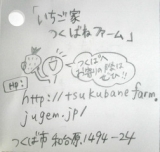 「いちご家
つくばねファーム」
つくばへ
お寄りの際は
ぜひ!!
HP:
http://tsukubanefarm.
jugem.jp/
つくば市和台原1494-24